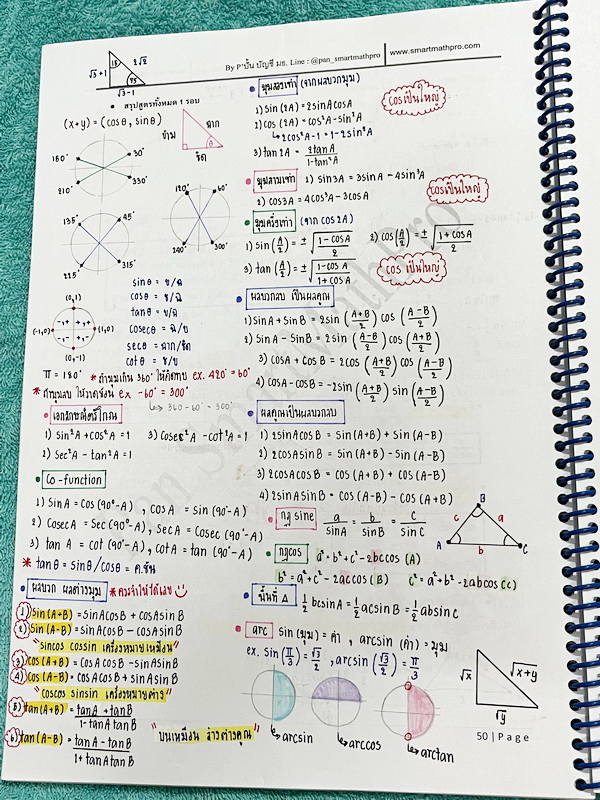 By P'ปั้น บัญชี มธ. Line : @pan_smartmathpro | www.smartmathpro.com
√3+1 15 2√2
45
√3-1
• สรุปสูตรทั้งหมด 1 รอบ
(x+y) = (cosθ, sinθ)
ข้าม ฉาก
ชิด θ
150° 30°
210° 330°
120° 60°
240° 300°
135° 45°
225° 315°
(0,1)
(-1,0) -,+ +,+ (1,0)
-,- +,-
(0,-1)
sinθ = ข/ฉ
cosθ = ช/ฉ
tanθ = ข/ช
cosecθ = ฉ/ข
secθ = ฉาก/ชิด
cotθ = ช/ข
π = 180° * ถ้ามุมเกิน 360° ให้ตัดทบ ex. 420° = 60°
* ถ้ามุมลบ ให้วาดย้อน ex -60° = 300°
↳ 360-60° = 300°
• เอกลักษณ์ตรีโกณ
1) sin²A + cos²A = 1 3) cosec²A - cot²A = 1
2) sec²A - tan²A = 1
• Co-function
1) SinA = Cos(90°-A) , cosA = Sin(90°-A)
2) CosecA = Sec(90°-A), SecA = Cosec(90°-A)
3) tanA = cot(90°-A), cotA = tan(90°-A)
* tanθ = sinθ/cosθ = ค.ชัน
• ผลบวก ผลต่างมุม * ควรจำให้ได้เลย
1) sin(A+B) = sinAcosB + cosAsinB
2) sin(A-B) = sinAcosB - cosAsinB
"sincos cossin เครื่องหมายเหมือน"
3) cos(A+B) = cosAcosB - sinAsinB
4) cos(A-B) = cosAcosB + sinAsinB
"coscos sinsin เครื่องหมายต่าง"
5) tan(A+B) = tanA + tanB
1 - tanAtanB
6) tan(A-B) = tanA - tanB "บนเหมือน ล่างต่างคูณ"
1 + tanAtanB
• มุมสองเท่า (จากผลบวกมุม)
cosเป็นใหญ่
1) sin(2A) = 2sinAcosA
2) cos(2A) = cos²A - sin²A
↳ 2cos²A-1 = 1-2sin²A
3) tan2A = 2tanA
1-tan²A
• มุมสามเท่า 1) sin3A = 3sinA - 4sin³A
2) cos3A = 4cos³A - 3cosA
cosเป็นใหญ่
• มุมครึ่งเท่า (จาก cos2A)
1) sin(A/2) = ±√(1-cosA / 2) 2) cos(A/2) = ±√(1+cosA / 2)
3) tan(A/2) = ±√(1-cosA / 1+cosA)
cos เป็นใหญ่
• ผลบวกลบ เป็นผลคูณ
1) sinA + sinB = 2sin(A+B/2)cos(A-B/2)
2) sinA - sinB = 2sin(A-B/2)cos(A+B/2)
3) cosA + cosB = 2cos(A+B/2)cos(A-B/2)
4) cosA - cosB = -2sin(A+B/2)sin(A-B/2)
• ผลคูณเป็นผลบวกลบ
1) 2sinAcosB = sin(A+B) + sin(A-B)
2) 2cosAsinB = sin(A+B) - sin(A-B)
3) 2cosAcosB = cos(A+B) + cos(A-B)
4) 2sinAsinB = cos(A-B) - cos(A+B)
• กฎ sine a/sinA = b/sinB = c/sinC
B
c a
A b C
• กฎcos a² = b²+c² - 2bccos(A)
b² = a²+c² - 2accos(B) c² = a²+b² - 2abcos(C)
• พื้นที่ Δ ½bcsinA = ½acsinB = ½absinC
• arc sin(มุม) = ค่า , arcsin(ค่า) = มุม
ex. sin(π/3) = √3/2 , arcsin(√3/2) = π/3
√x √x+y
√y
↳ arcsin ↳ arccos ↳ arctan
50 | Page
Pan SmartMathPro